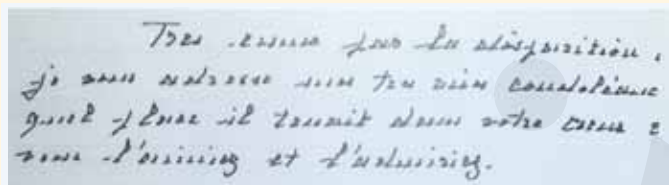 Tres emue par la disparition,
je vous adresse mes tres vives condoléanc
quel place il tenait dans votre coeur e
vous l'aimiez et l'admiriez.